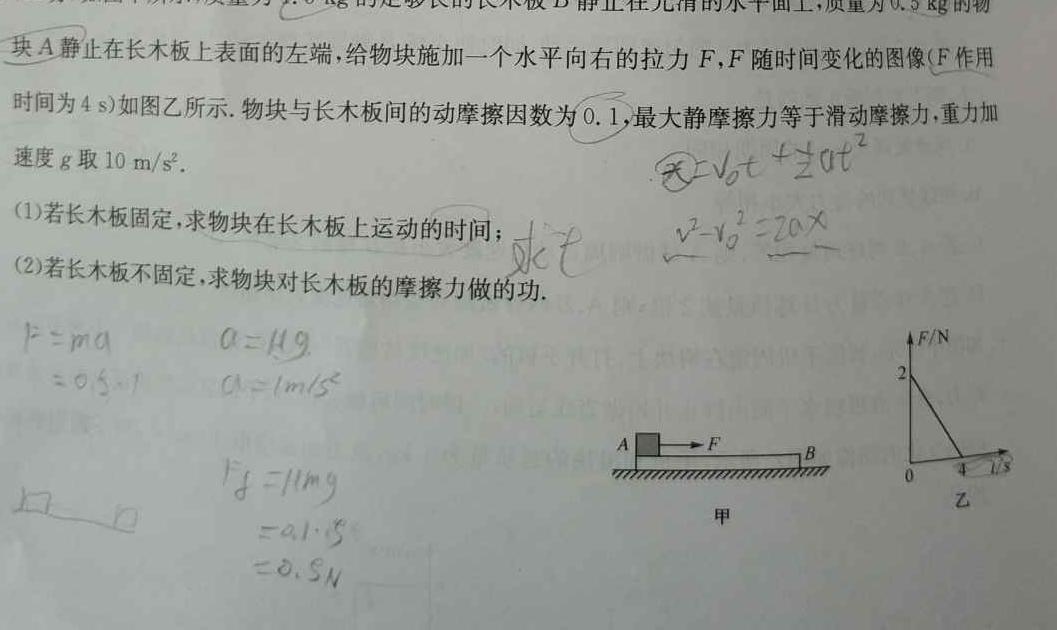 kg 的足够长的长木板 B 静止在光滑的水平面上,质量为 0.5 kg 的物
块 A 静止在长木板上表面的左端,给物块施加一个水平向右的拉力 F,F 随时间变化的图像(F 作用
时间为 4 s)如图乙所示.物块与长木板间的动摩擦因数为 0.1,最大静摩擦力等于滑动摩擦力,重力加
速度 g 取 10 m/s².
x=v₀t+½at²
(1)若长木板固定,求物块在长木板上运动的时间;
求t
v²-v₀²=2ax
(2)若长木板不固定,求物块对长木板的摩擦力做的功.
F=ma
a=μg
=0.5·1
a=1m/s²
Ff=μmg
=0.5N
F/N
2
0
4
t/s
乙
A
F
B
甲